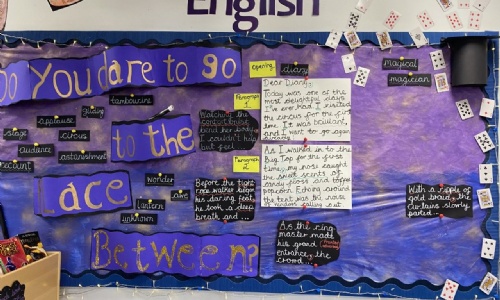 English
Do You dare to go
to the
lace
Between?
opening
diary
magical
magician
tambourine
applause
stage
circus
audience
astonishment
wonder
awe
lantern
unknown
Paragraph
Dear Diary,
Today was one of the
most delightful visits
I've ever had. I visited
the circus for the first
time. It was brilliant,
and I want to go again
Paragraph
2
As I walked in to the
Big Top for the first
time, my nose caught
the sweet scents of
candy floss and toffee
popcorn. Echoing around
the tent was the noise
Watching the
but feel
Before the tight
rope walker began
his daring feat,
he took a deep
breath and ...
As the ring
master made
his grand
entrance, the
crowd...
With a ripple of
gold braid, the
curtains slowly
parted...